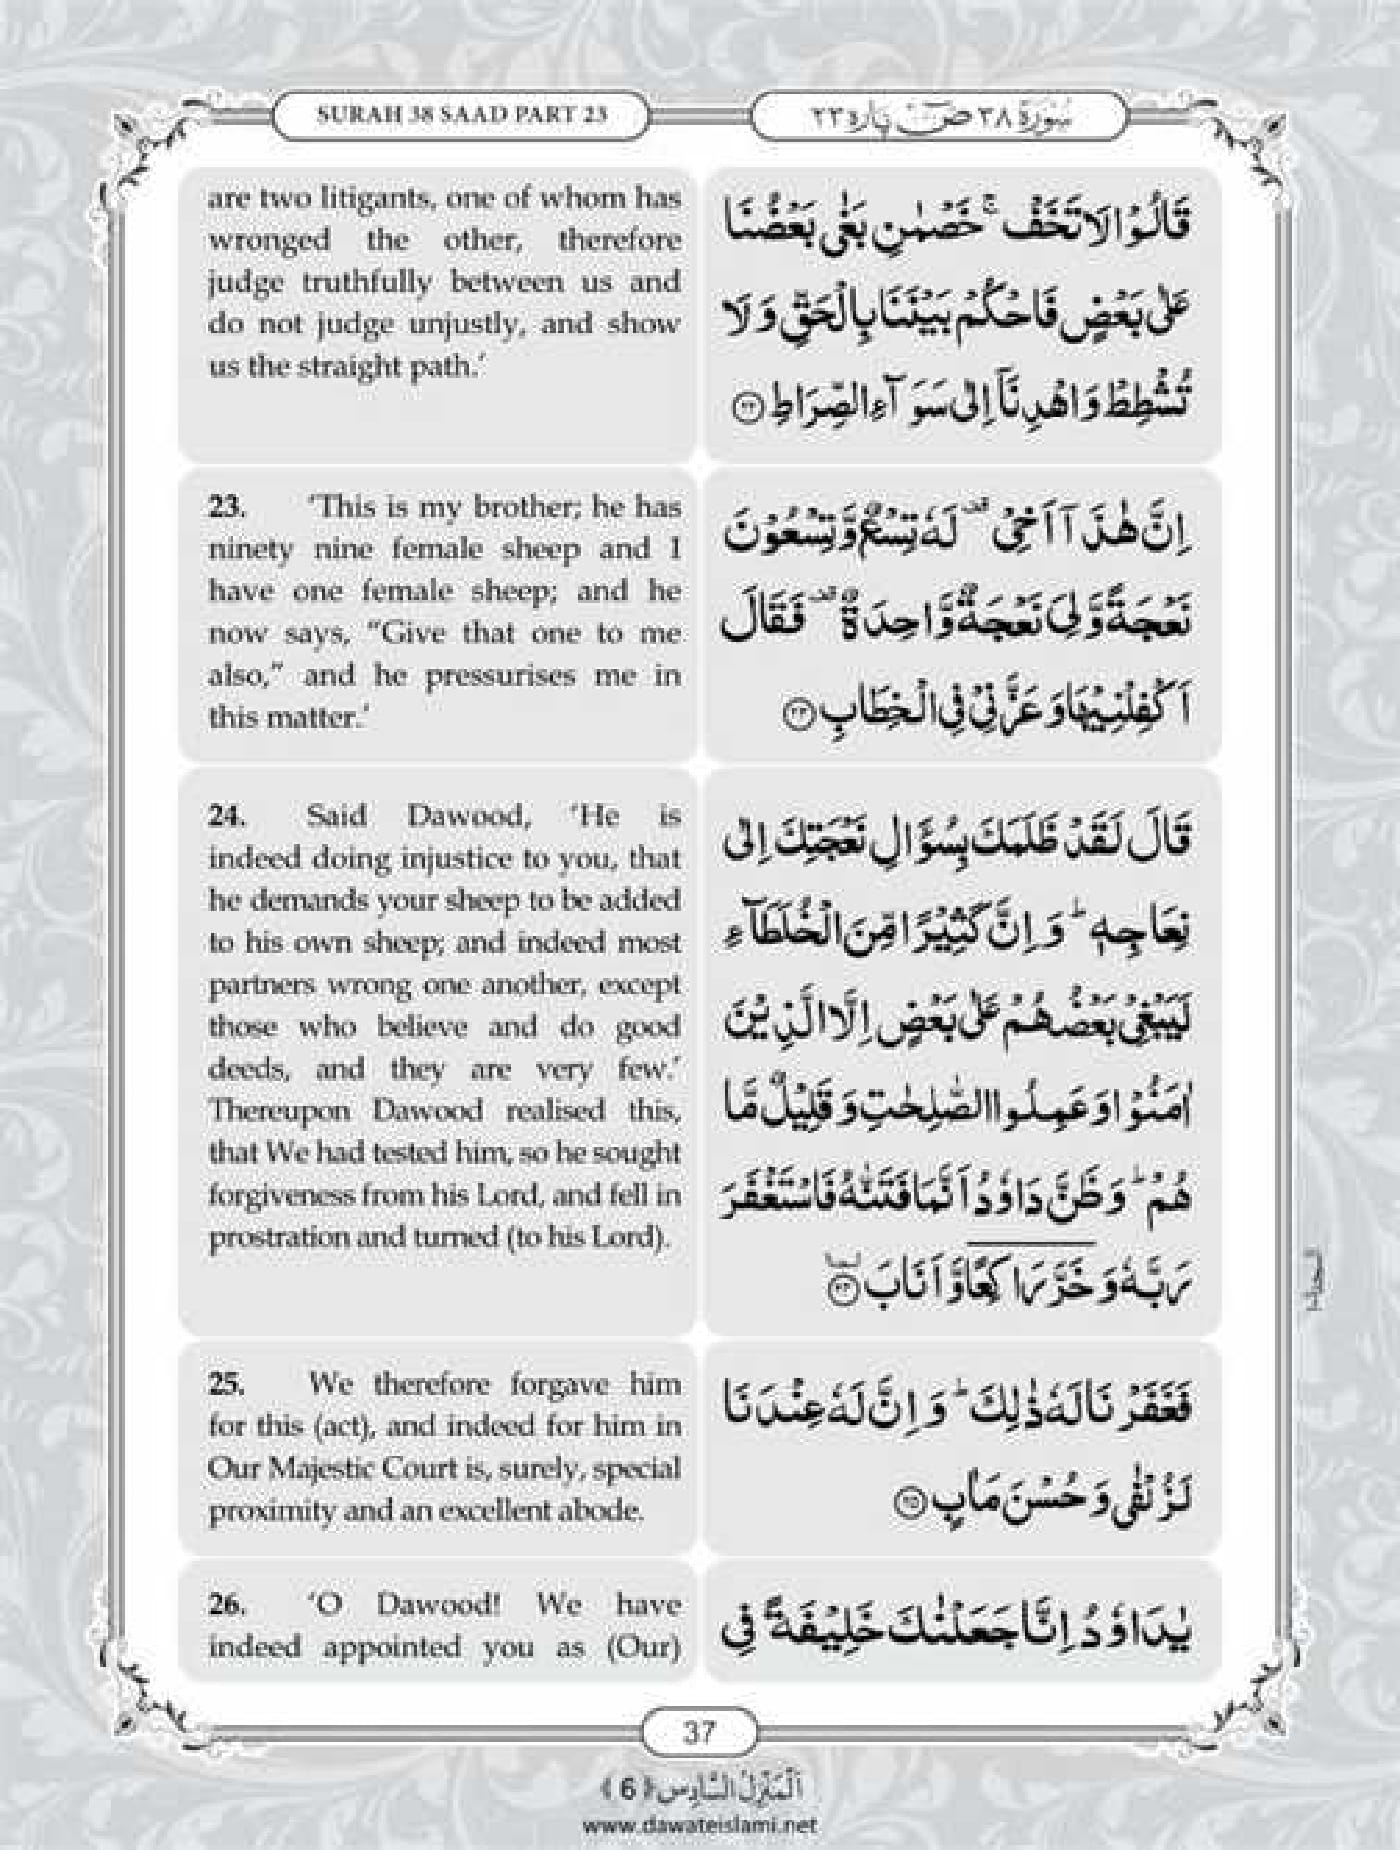 SURAH 38 SAAD PART 23
سُوْرَة ٣٨ صٓ پاره ٢٣
are two litigants, one of whom has
wronged the other, therefore
judge truthfully between us and
do not judge unjustly, and show
us the straight path.’
قَالُوْا لَا تَخَفْ ۚ خَصْمٰنِ بَغٰى بَعْضُنَا
عَلٰى بَعْضٍ فَاحْكُمْ بَيْنَنَا بِالْحَقِّ وَ لَا
تُشْطِطْ وَ اهْدِنَاۤ اِلٰى سَوَآءِ الصِّرَاطِ ﴿۲۲﴾
23. ‘This is my brother; he has
ninety nine female sheep and I
have one female sheep; and he
now says, “Give that one to me
also,” and he pressurises me in
this matter.’
اِنَّ هٰذَاۤ اَخِيْ ۫ لَهٗ تِسْعٌ وَّ تِسْعُوْنَ
نَعْجَةً وَّ لِيَ نَعْجَةٌ وَّاحِدَةٌ ۫ فَقَالَ
اَكْفِلْنِيْهَا وَ عَزَّنِيْ فِي الْخِطَابِ ﴿۲۳﴾
24. Said Dawood, ‘He is
indeed doing injustice to you, that
he demands your sheep to be added
to his own sheep; and indeed most
partners wrong one another, except
those who believe and do good
deeds, and they are very few.’
Thereupon Dawood realised this,
that We had tested him, so he sought
forgiveness from his Lord, and fell in
prostration and turned (to his Lord).
قَالَ لَقَدْ ظَلَمَكَ بِسُؤَالِ نَعْجَتِكَ اِلٰى
نِعَاجِهٖ ؕ وَ اِنَّ كَثِيْرًا مِّنَ الْخُلَطَآءِ
لَيَبْغِيْ بَعْضُهُمْ عَلٰى بَعْضٍ اِلَّا الَّذِيْنَ
اٰمَنُوْا وَ عَمِلُوا الصّٰلِحٰتِ وَ قَلِيْلٌ مَّا
هُمْ ؕ وَ ظَنَّ دَاوٗدُ اَنَّمَا فَتَنّٰهُ فَاسْتَغْفَرَ
رَبَّهٗ وَ خَرَّ رَاكِعًا وَّ اَنَابَ ﴿۲۴﴾
25. We therefore forgave him
for this (act), and indeed for him in
Our Majestic Court is, surely, special
proximity and an excellent abode.
فَغَفَرْنَا لَهٗ ذٰلِكَ ؕ وَ اِنَّ لَهٗ عِنْدَنَا
لَزُلْفٰى وَ حُسْنَ مَاٰبٍ ﴿۲۵﴾
26. ‘O Dawood! We have
indeed appointed you as (Our)
يٰدَاوٗدُ اِنَّا جَعَلْنٰكَ خَلِيْفَةً فِي
37
اَلْمَنْزِلُ السَّادِس ﴿6﴾
www.dawateislami.net